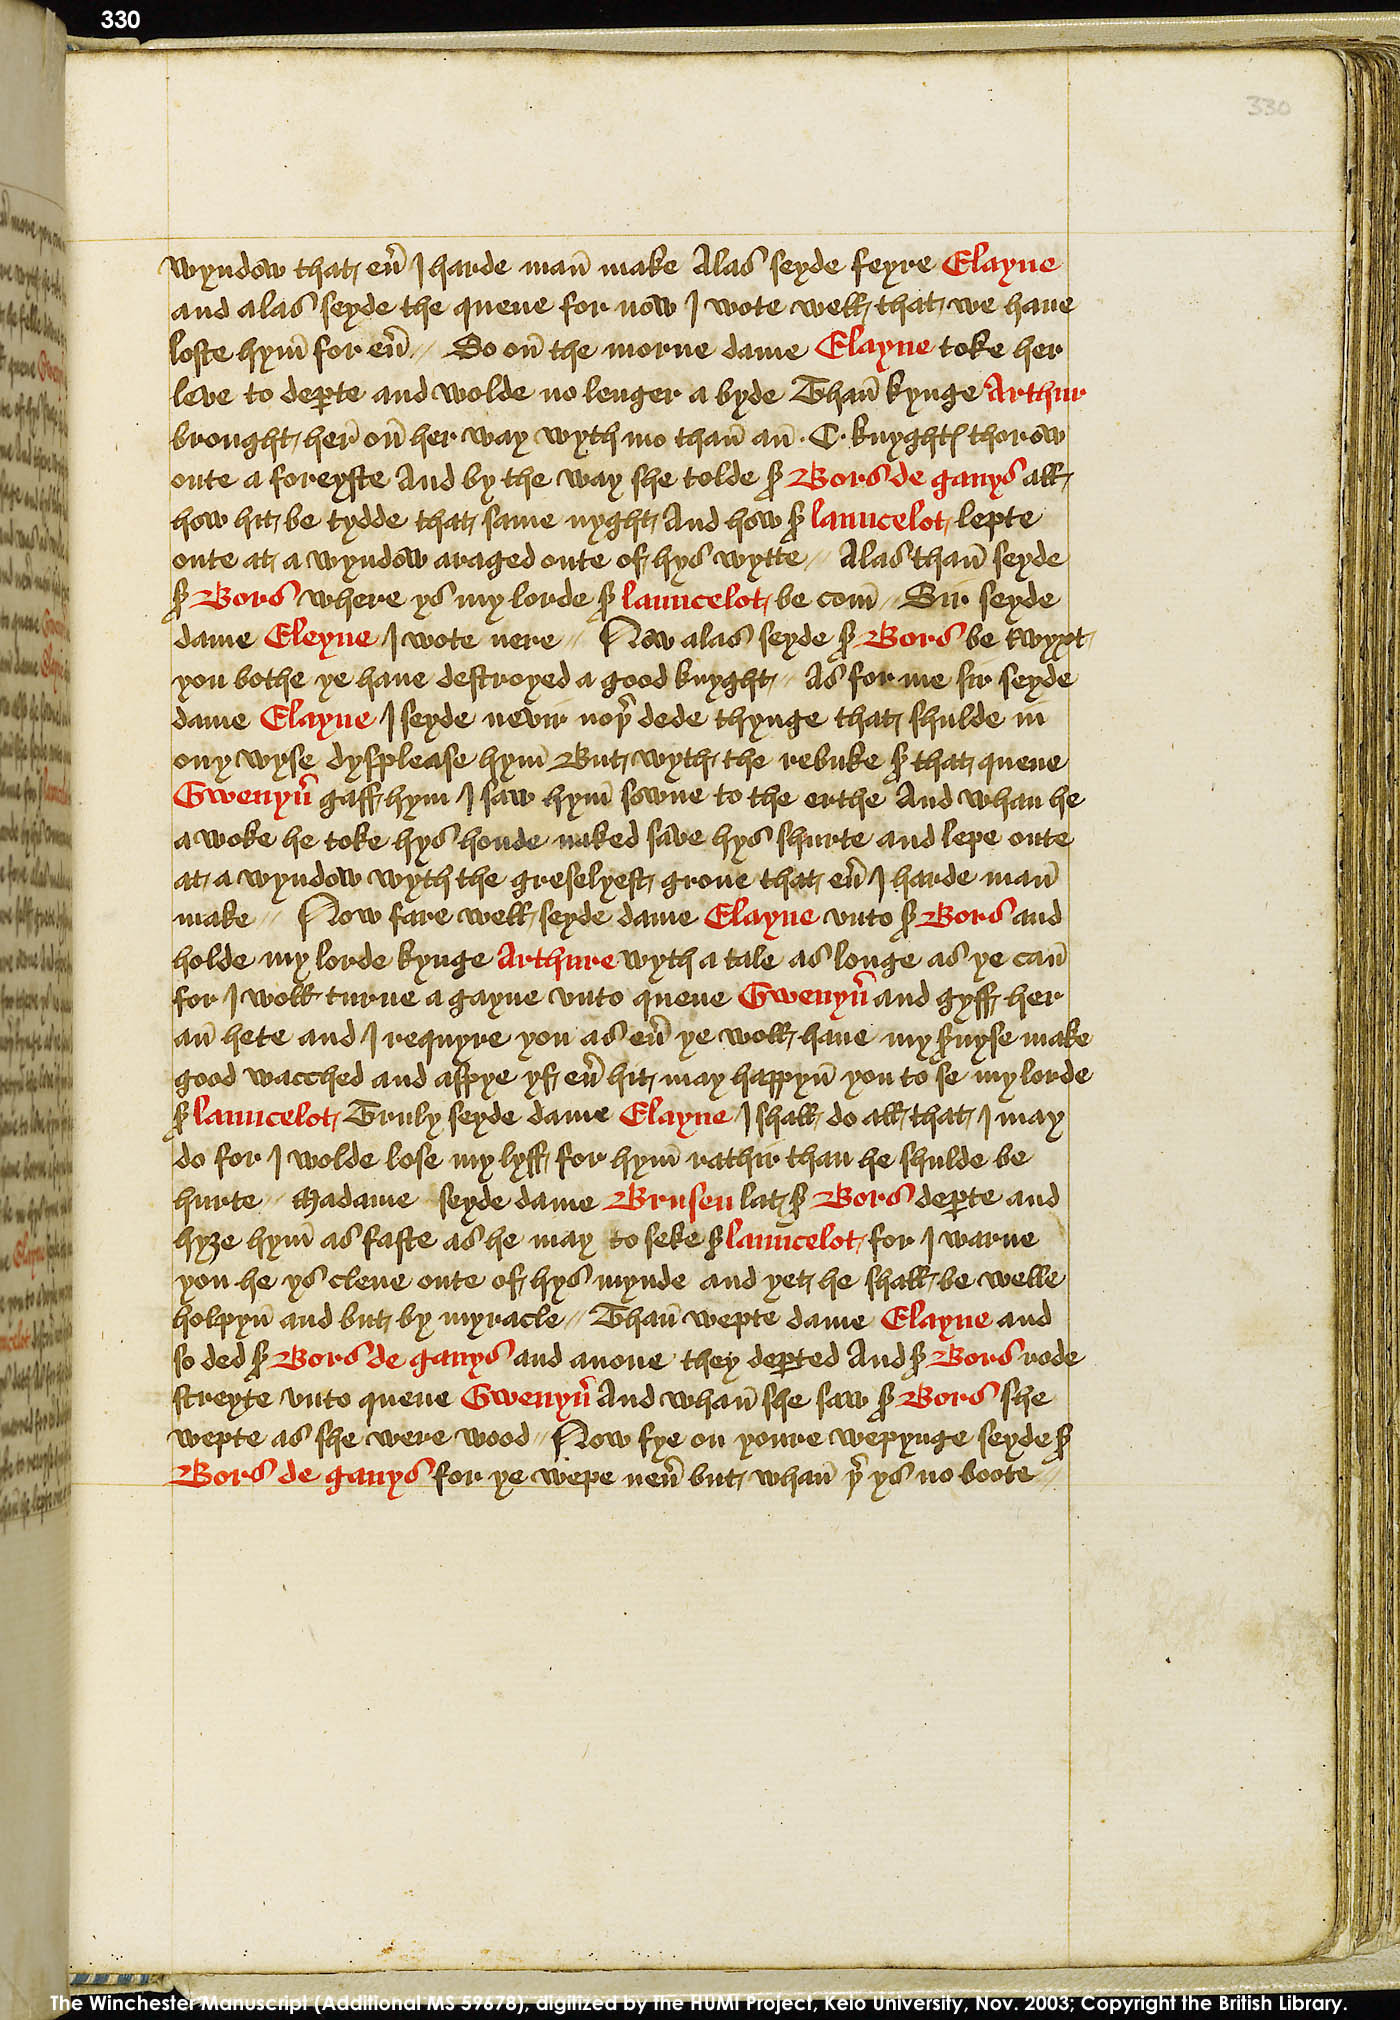 330
330
wyndow that eũ I harde mañ make Alas seyde feyre Elayne
and alas seyde the quene for now I wote well that we haue
loste hym̃ for eũ // So oñ the morne dame Elayne toke her
leve to deꝑte and wolde no lenger a byde Thañ kynge Arthur
brought her̃ oñ her way wyth mo thañ añ · C · knyghtꝭ thorow
oute a foreyste And by the way she tolde sꝛ Bors de ganys all
how hit be tydde that same nyght And how sꝛ launcelot lepte
oute at a wyndow araged oute of hys wytte // Alas thañ seyde
sꝛ Bors where ys my lorde sꝛ launcelot be com̃ // Sir seyde
dame Eleyne I wote nere // Now alas seyde sꝛ Bors be twyxt
you bothe ye haue destroyed a good knyght // As for me sir seyde
dame Elayne I seyde nevir noꝑ̃ dede thynge that shulde in
ony wyse dysplease hym̃ But wyth the rebuke sꝛ that quene
Gwenyũ gaff hym I saw hym̃ sowne to the erthe And whan he
a woke he toke hys honde naked save hys shurte and lepe oute
at a wyndow wyth the greselyest grone that eũ I harde mañ
make // Now fare well seyde dame Elayne vnto sꝛ Bors and
holde my lorde kynge Arthure wyth a tale as longe as ye cañ
for I woll turne a gayne vnto quene Gwenyũ and gyff her
añ hete and I requyre you as eũ ye woll haue my ẜuyse make
good wacched and aspye yf eũ hit may happyñ you to se my lorde
sꝛ launcelot Truly seyde dame Elayne I shall do all that I may
do for I wolde lose my lyff for hym̃ rathir than he shulde be
hurte // Madame seyde dame Brusen lat sꝛ Bors deꝑte and
hyȝe hym̃ as faste as he may to seke sꝛ launcelot for I warne
you he ys clene oute of hys mynde and yet he shall be welle
holpyñ and but by myracle // Thañ wepte dame Elayne and
so ded sꝛ Bors de ganys and anone they deꝑted And sꝛ Bors rode
streyte vnto quene Gwenyũ And whañ she saw sꝛ Bors she
wepte as she were wood // Now fye on youre wepynge seyde sꝛ
Bors de ganys for ye wepe neũ but whañ ꝑ̃ ys no boote //
The Winchester Manuscript (Additional MS 59678), digitized by the HUMI Project, Keio University, Nov. 2003; Copyright the British Library.